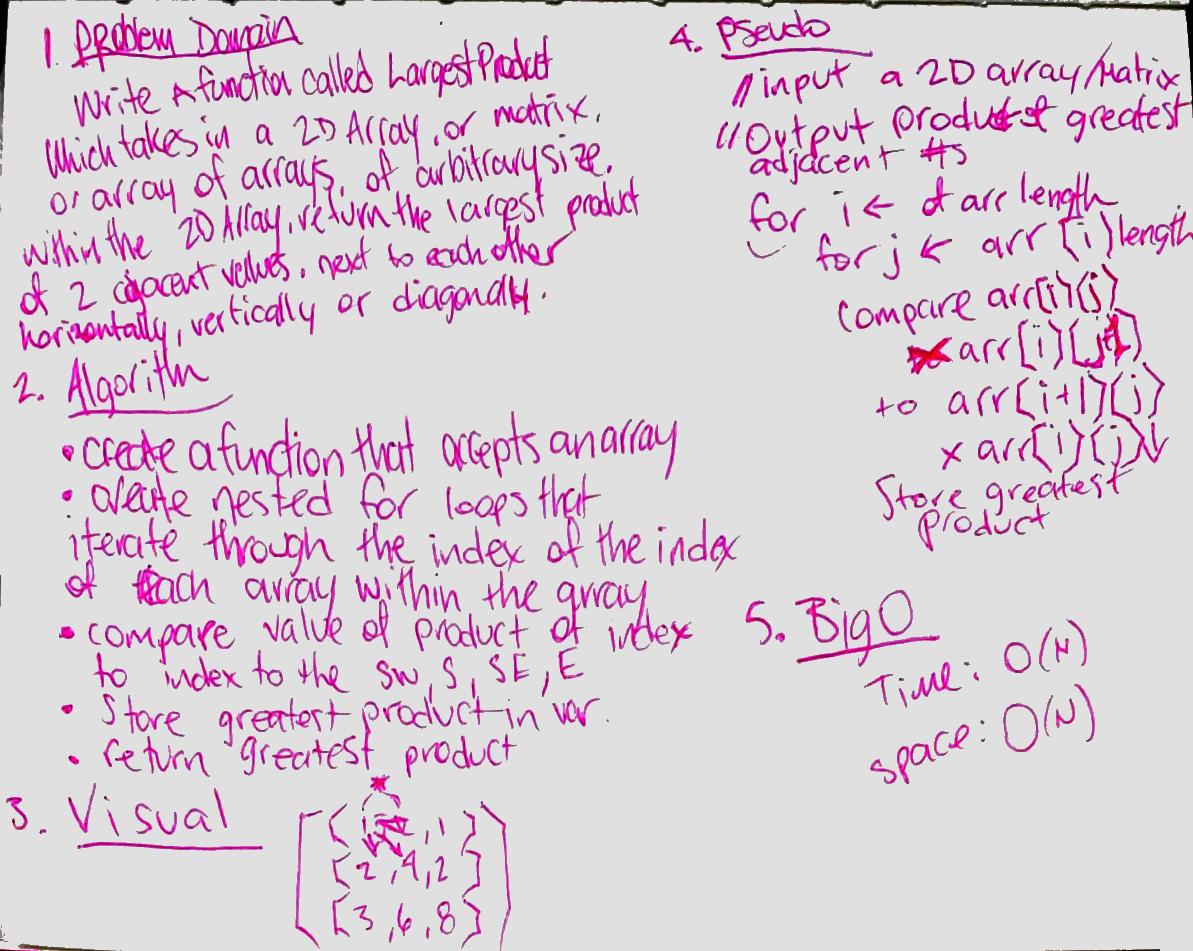 1. Problem Domain
Write A function called LargestProduct
Which takes in a 2D Array, or matrix,
or array of arrays, of arbitrary size.
within the 2D Array, return the largest product
of 2 ajacent values, next to each other
horizontally, vertically or diagonally.
2. Algorithm
• create a function that accepts an array
• create nested for loops that
iterate through the index of the index
of Each array within the array
• compare value of product of index
to index to the SW, S, SE, E
• Store greatest product in var.
• return greatest product
3. Visual
, 1 ]
[2, 4, 2]
[3, 6, 8]
4. Pseudo
// input a 2D array/Matrix
// Output product of greatest
adjacent #s
for i ← of arr length
for j ← arr [i] length
Compare arr[i][j]
x arr[i][j+1]
to arr[i+1][j]
x arr[i][j]↓
Store greatest
product
5. Big O
Time: O(N)
space: O(N)